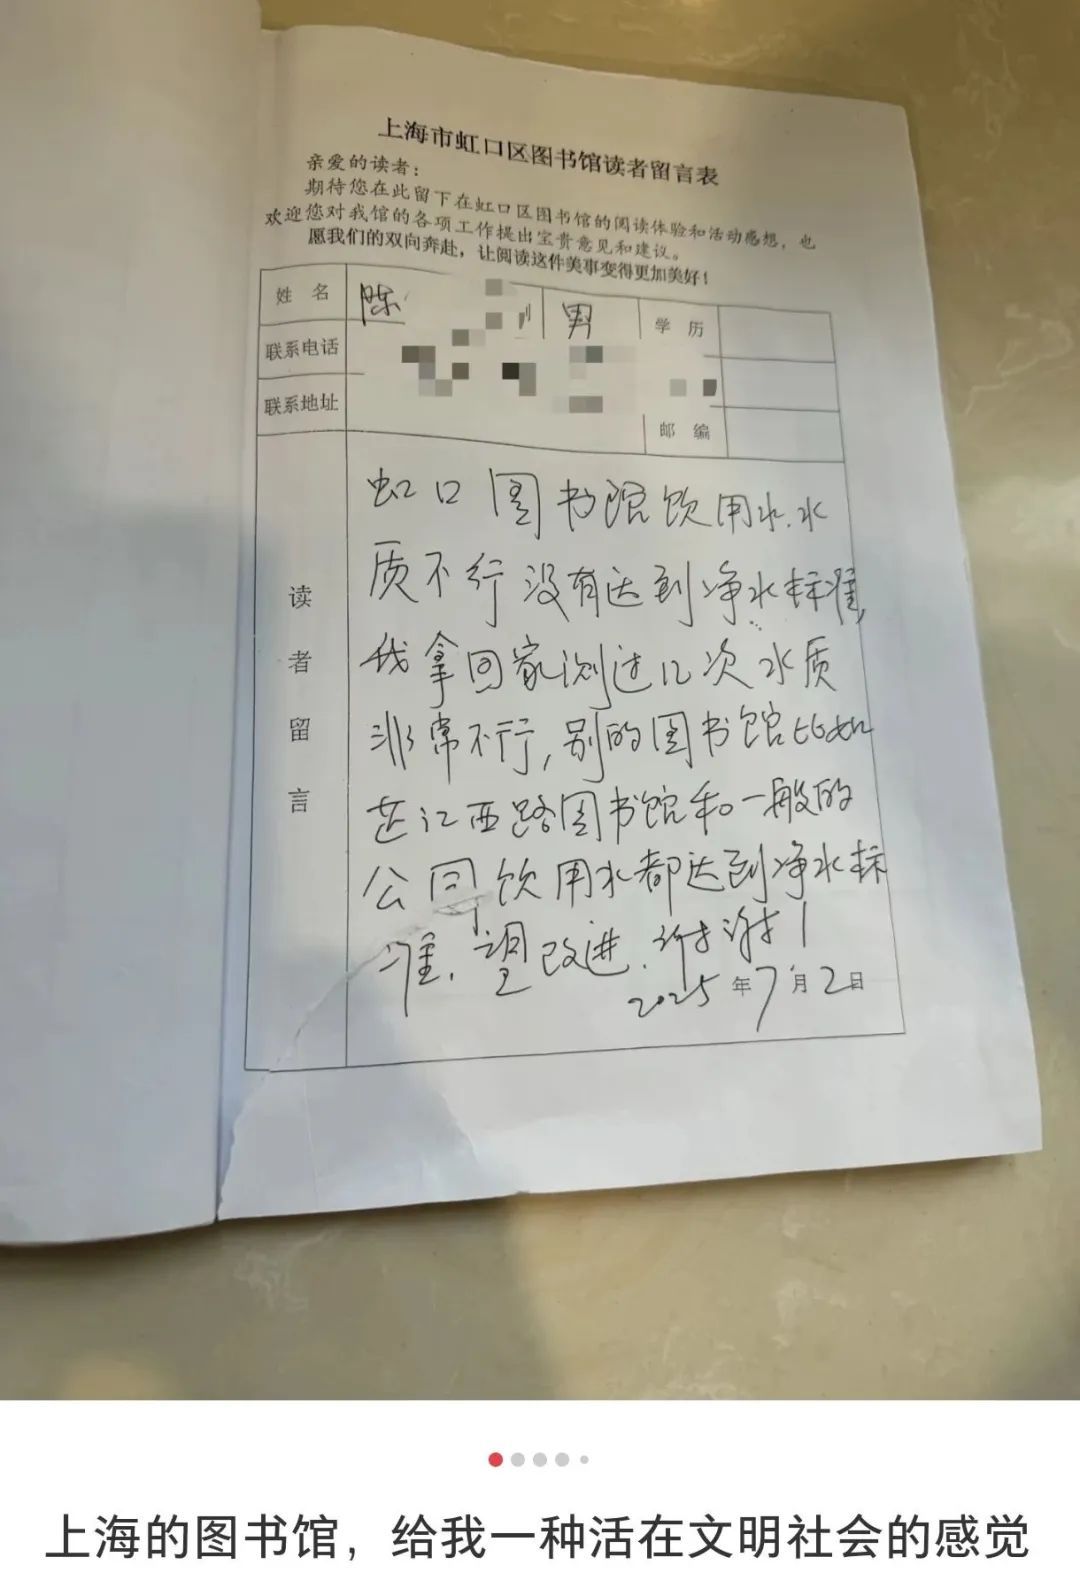 上海市虹口区图书馆读者留言表
亲爱的读者：
期待您在此留下在虹口区图书馆的阅读体验和活动感想，也
欢迎您对我馆的各项工作提出宝贵意见和建议。
愿我们的双向奔赴，让阅读这件美事变得更加美好！
姓 名 陈 别 男 学 历
联系电话
联系地址 邮 编
读者留言
虹口图书馆饮用水.水
质不行没有达到净水标准,
我拿回家测过几次水质
非常不行,别的图书馆比如
芷江西路图书馆和一般的
公园饮用水都达到净水标
准.望改进.谢谢！
2025年7月2日
上海的图书馆，给我一种活在文明社会的感觉